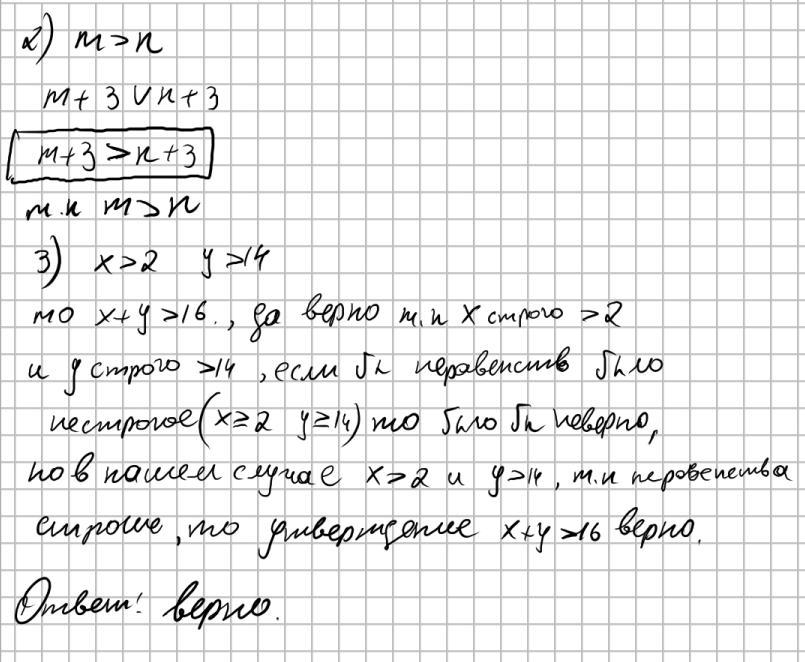 2) m>n
m+3 ∨ n+3
m+3 > n+3
т.к m>n
3) x>2 y>14
то x+y>16., да верно т.к x строго >2
и y строго >14, если бы неравенств было
нестрогое (x≥2 y≥14) то было бы неверно,
но в нашем случае x>2 и y>14, т.к неровенства
строгие, то утверждение x+y>16 верно.
Ответ: верно.